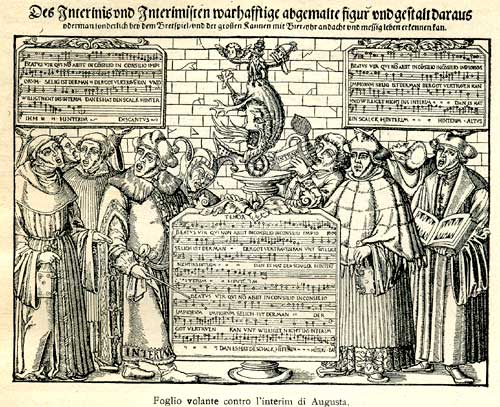 Des Interims vnd Interimisten warhafftige abgemalte figur vnd gestalt daraus
yderman sonderlich bey dem Bretspiel vnd der grossen Kannen mit Bier yhr andacht vnd messig leben erkennen kan.
BEATUS VIR QUI NO ABIIT IN CONSILIO IMP
ORUM SELIG IST DERMAN DER GOT VERTRAVEN VND
WILIGT NICHT INS INTERIM DAN ES HAT DEN SCALK HINTER
IHM HINTERIM DESCANTVS
BEATUS VIR QUI NO ABIIT IN CONSILIO IMPIORUM
IMPIORUM SELIG IST DERMAN DER GOT VERTRAVEN KAN
VND WILIGET NICHT INS INTERIM DAN ES HAT
DEN SCALCK HINTERIM HINTERIM ALTVS
TENOR
BEATUS VIR QUI NON ABIIT IN CONSILIO IMPIO RUM
SELICH IST DER MAN DER GOT VERTRAVEN KAN VNT WILLIGT
INTERIM HINTERIM
BEATUS VIR QUI NO ABIIT IN CONSILIO IN CONSILIO
IMPIORUM IMPIORUM SELICH IST DERMAN DER
GOT VERTRVEN KAN VNT WILIGER NICHT INS INTERIM
DAN ES HAT DE SCHALK HINTERIM HINTERIM
INTERIM
Foglio volante contro l'interim di Augusta.